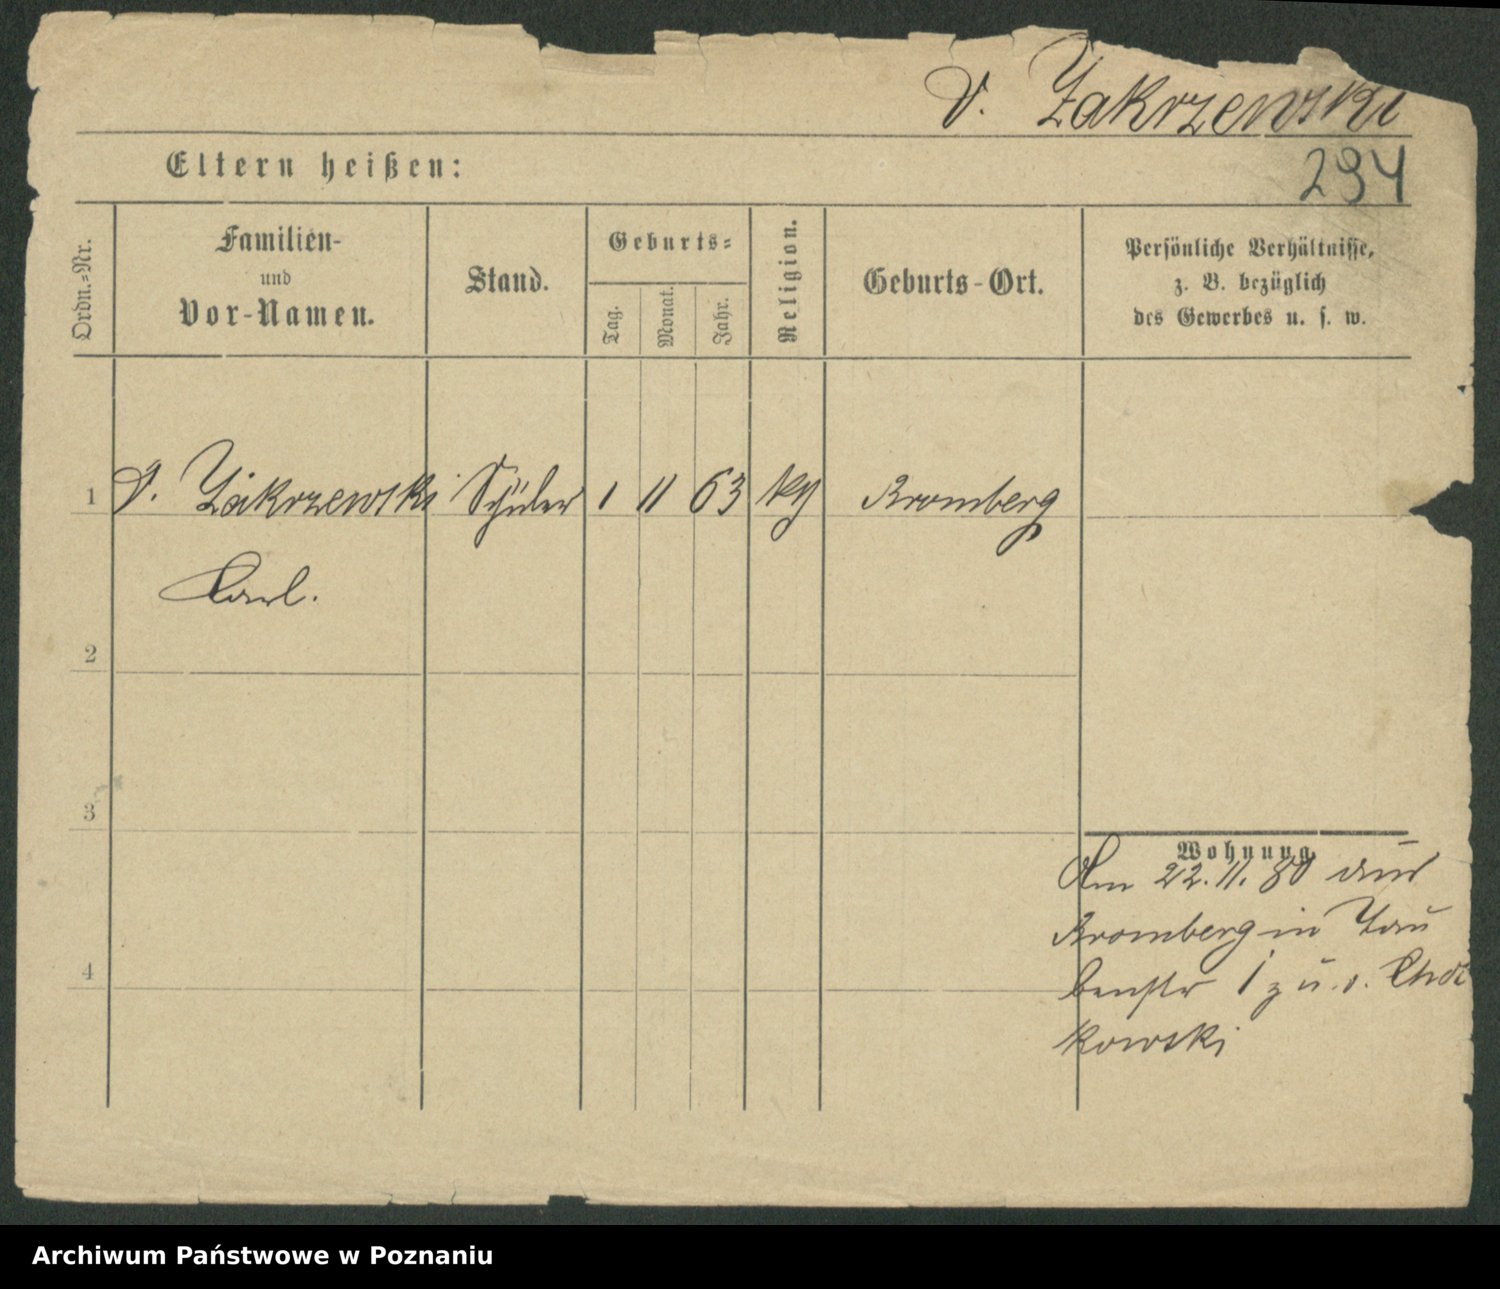 v. Zakrzewski
Eltern heißen:
294
Ordn.-Nr.
Familien-
und
Vor-Namen.
Stand.
Geburts-
Tag.
Monat.
Jahr.
Religion.
Geburts-Ort.
Persönliche Verhältnisse,
z. B. bezüglich
des Gewerbes u. s. w.
1 v. Zakrzewski Schüler 1 11 63 kth Bromberg
Carl.
2
3
4
Wohnung
Am 22. 11. 80 aus
Bromberg in Tau
benstr 1 zu v.
kowski
Archiwum Państwowe w Poznaniu